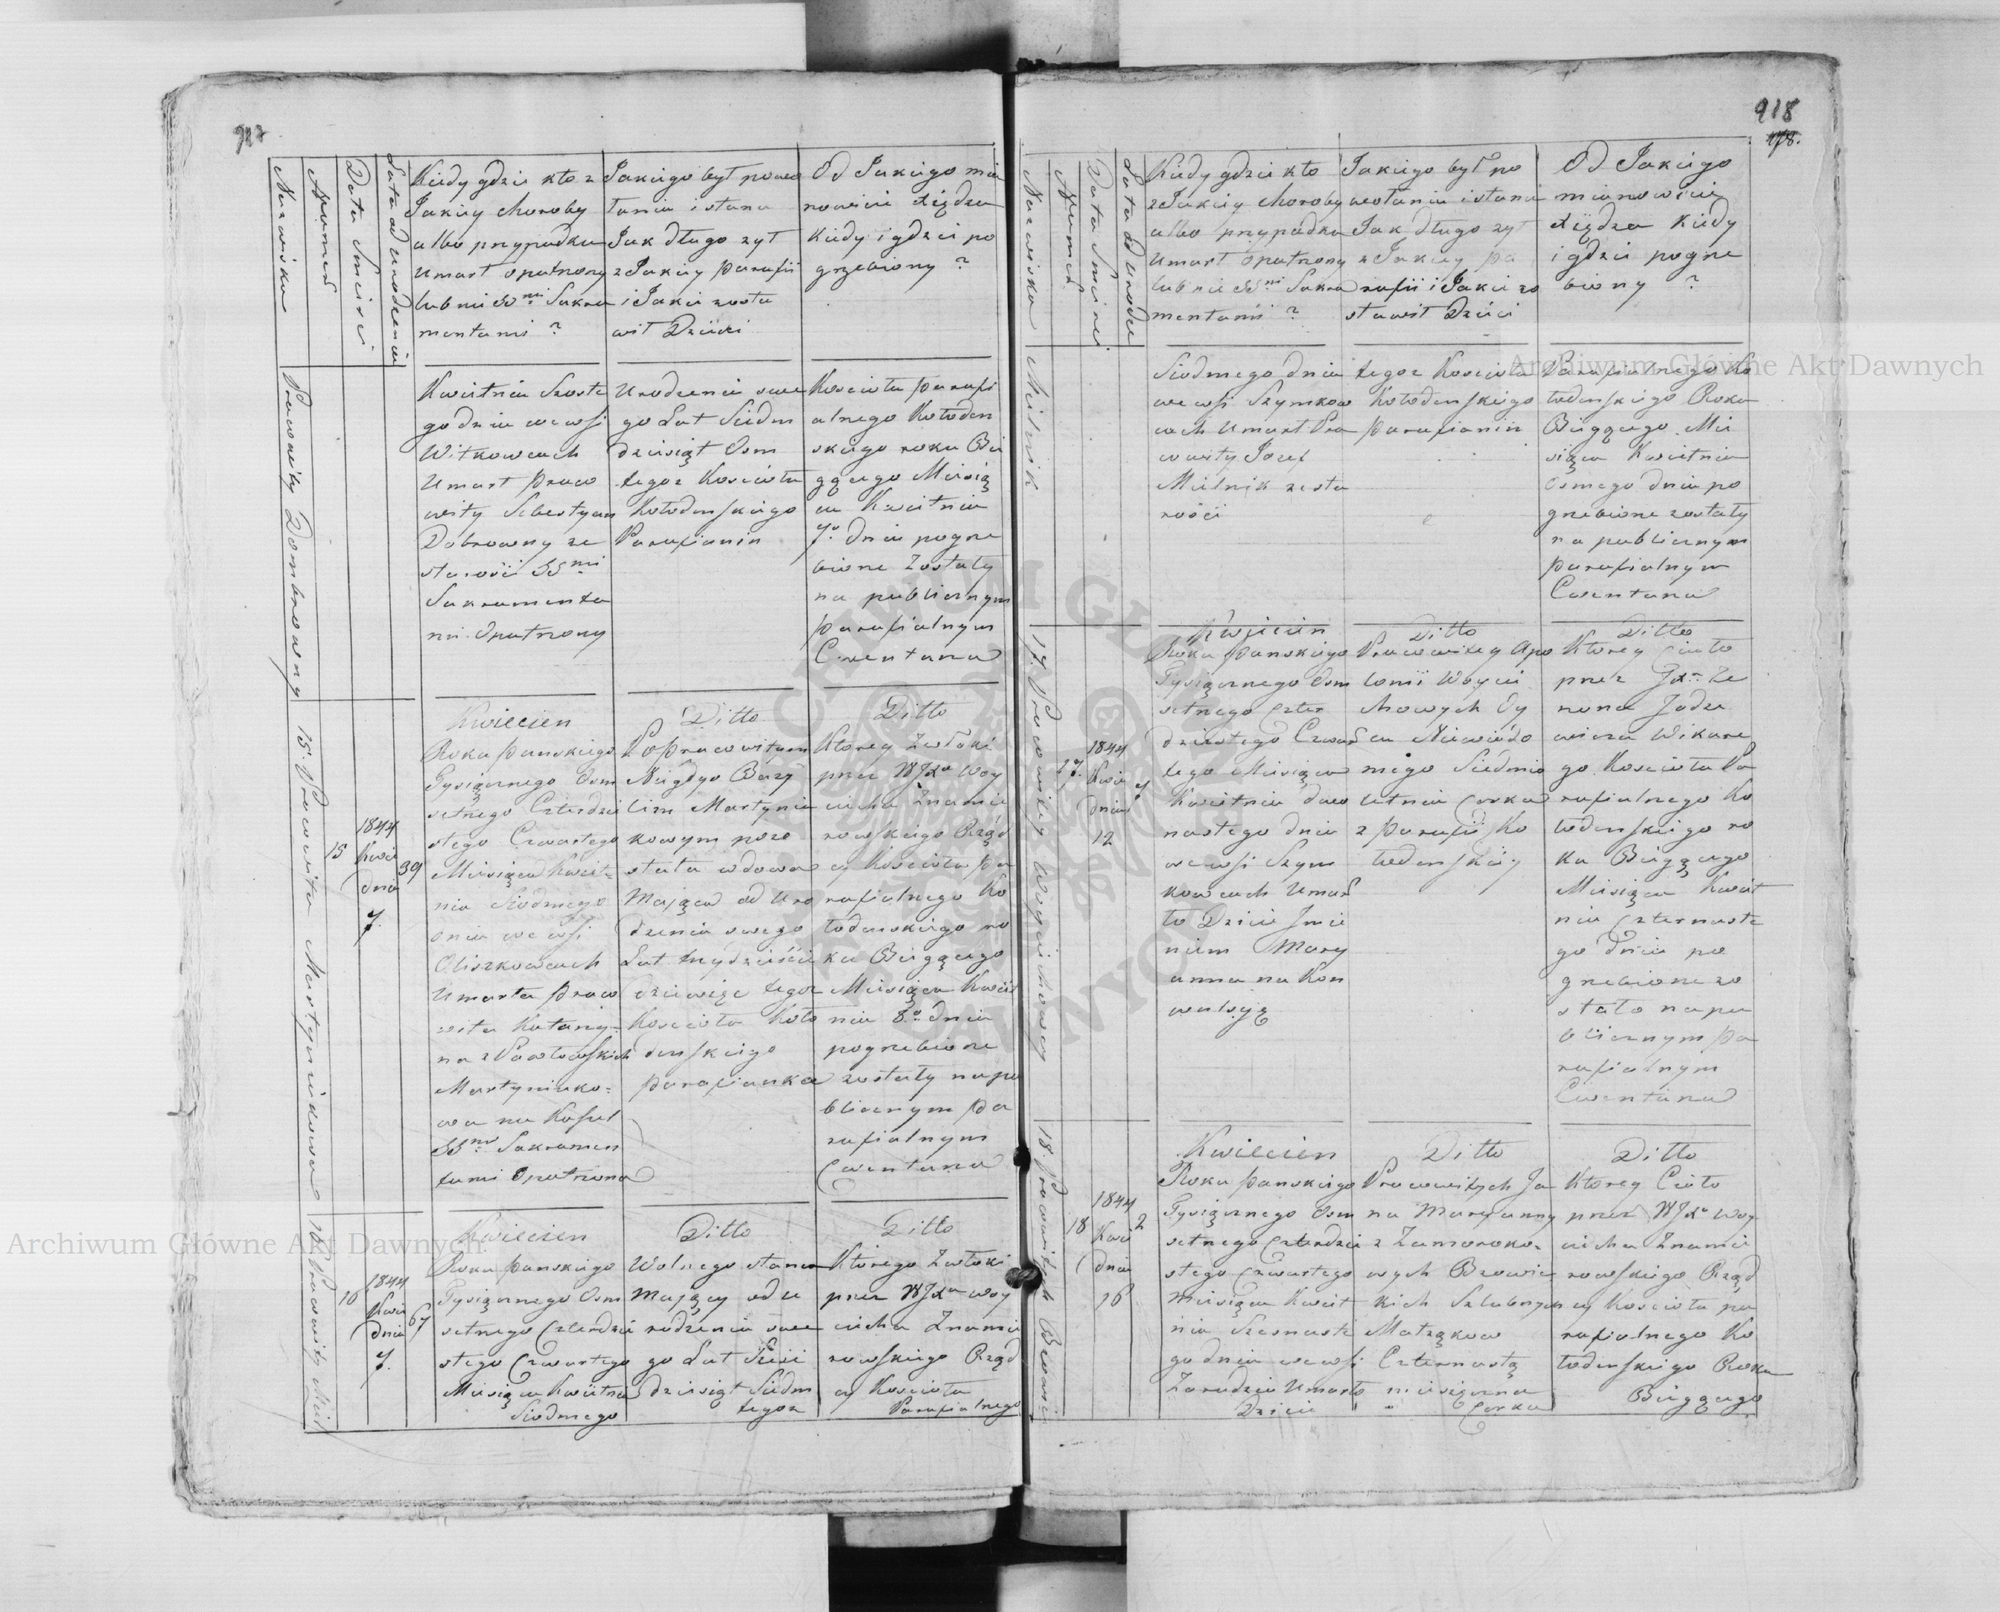 917
Nazwisko
Numer
Data Smierci
Lata od Urodzenia
Kiedy gdzie kto z
Jakiey choroby
albo przypadku
Umarł opatrzony
lub nie SSmi Sakra
mentami ?
Jakiego był powo
łania i stanu
Jak długo żył
z Jakiey parafii
i Jakie zosta
wił Dzieci
Od Jakiego mia
nowicie Xiędza
kiedy i gdzie po
grzebiony ?
Pracowity Dombrowny
Kwietnia Szoste
go dnia we wsi
Witkowcach
Umarł praco
wity Sebestyan
Dobrowny ze
starości SSmi
Sakramenta
mi opatrzony
Urodzenia swe
go Lat Siedm
dziesiąt Osm
tegoż Kościoła
Kołodenskiego
Parafianin
Kościoła parafi
alnego Kołoden
skiego roku Bie
gącego Miesią
ca Kwietnia
7o dnia pogrze
bione Zostały
na publicznym
parafialnym
Cmentarzu
15. Pracowita Martyniukowa
15
1844
Kwie
dnia
7.
39
Kwiecien
Roku panskiego
Tysiącznego Osm
setnego Czterdzie
stego Czwartego
Miesiąca Kwiet-
nia Siodmego
dnia we wsi
Oliszkowcach
Umarła praco
wita Katarzy-
na z Pawłowskich
Martyniuko-
wa na Kaszel
SSmi Sakramen
tami Opatrzona
Ditto
Po pracowitym
Niegdyś Bazy
lim Martyniu
kowym pozo
stała wdowa
Mająca od Uro
dzenia swego
Lat trzydzieście
dziewięć tegoż
Kościoła Koło
denskiego
parafianka
Ditto
Ktorey Zwłoki
przez WJXa Woy
ciecha Znamie
rowskiego Rząd
cy Kościoła pa
rafialnego Ko
łodenskiego ro
ku Biegącego
Miesiąca Kwiet
nia 8o dnia
pogrzebione
zostały na pu
blicznym pa
rafialnym
Cmentarzu
16. Pracowity Miel
16
1844
Kwie
dnia
7.
67
Kwiecien
Roku panskiego
Tysiącznego Osm
setnego Czterdzie
stego Czwartego
Miesiąca Kwietnia
Siodmego
Ditto
Wolnego stanu
Mający od u
rodzenia swe
go Lat Sześć
dziesiąt Siedm
tegoż
Ditto
Którego Zwłoki
przez WJXa Woy
ciecha Znamie
rowskiego Rząd
cy Kościoła
Parafialnego
918
178.
Nazwisko
Numer
Data Smierci
Lata od Urodze
Kiedy gdzie kto
z Jakiey choroby
albo przypadku
Umarł opatrzony
lub nie SSmi Sakra
mentami ?
Jakiego był po
wołania i stanu
Jak długo żył
z Jakiey pa
rafii i Jakie zo
stawił Dzieci
Od Jakiego
mianowicie
Xiędza Kiedy
i gdzie pogrze
biony ?
Mielnik
Siodmego dnia
we wsi Szymkow
cach Umarł Pra
cowity Jozef
Mielnik ze sta
rości
tegoż Kościoła
Kołodenskiego
parafianin
Parafialnego Ko
łodenskiego Roku
Biegącego Mie
siąca Kwietnia
Osmego dnia po
grzebione zostały
na publicznym
parafialnym
Cmentarzu
17. Pracowitey Woyciechowey
17.
1844
Kwie
dnia
12
7
Kwiecien
Roku panskiego
Tysiącznego Osm
setnego Czter
dziestego Czwar
tego Miesiąca
Kwietnia dwu
nastego dnia
we wsi Szym
kowcach Umar
ło Dziecie Jmie
niem Mary
anna na Kon
wulsyą
Ditto
Pracowitey Apo
lonii Woycie
chowych Oy
ca Niewiado
mego Siedmio
letnia Corka
z parafii Ko
łodenskiey
Ditto
Ktorey Ciało
przez JXa Ze
nona Jodze
wicza Wikare
go Kościoła Pa
rafialnego Ko
łodenskiego ro
ku Biegącego
Miesiąca Kwiet
nia Czternaste
go dnia po
grzebione zo
stało na pu
blicznym pa
rafialnym
Cmentarzu
18. Pracowitych
18
1844
Kwie
dnia
16
2
Kwiecien
Roku panskiego
Tysiącznego Osm
setnego Czterdzie
stego Czwartego
Miesiąca Kwiet
nia Szesnaste
go dnia we wsi
Zarudziu Umarło
Dziecie
Ditto
Pracowitych Ja
na Maryanny
z Zamoroko-
wych
Szlubnych
Małżąkow
Czternastą
miesięczna
Corka
Ditto
Ktorey Ciało
przez WJXa Woy
ciecha Znamie
rowskiego Rząd
cy Kościoła pa
rafialnego Ko
łodenskiego Roku
Biegącego
Archiwum Główne Akt Dawnych
Archiwum Główne Akt Dawnych
ARCHIWUM GŁÓWNE AKT DAWNYCH